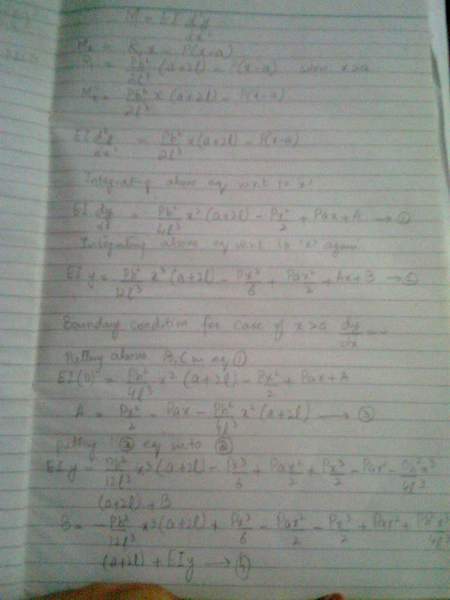 M = EI d²y/dx²
Mx = R₁x - P(x-a)
M₁ = Pb²/2l³ (a+2l) - P(x-a) when x>a
Mx = Pb²/2l³ x (a+2l) - P(x-a)
EI d²y/dx² = Pb²/2l³ x(a+2l) - P(x-a)
Integrating above eq w.r.t to 'x'
EI dy/dx = Pb²/4l³ x² (a+2l) - Px²/2 + Pax + A → ①
Integrating above eq w.r.t to 'x' again
EI y = Pb²/12l³ x³ (a+2l) - Px³/6 + Pax²/2 + Ax + B → ②
Boundary condition for case of x>a dy/dx
Putting above B.C in eq ①
EI(0) = Pb²/4l³ x² (a+2l) - Px²/2 + Pax + A
A = Px²/2 - Pax - Pb²/4l³ x² (a+2l) → ③
putting ③ eq into ②
EI y = Pb²/12l³ x³ (a+2l) - Px³/6 + Pax²/2 + Px³/2 - Pax² - Pb²x³/4l³
(a+2l) + B
B = - Pb²/12l³ x³ (a+2l) + Px³/6 - Pax²/2 - Px³/2 + Pax² + Pb²x³/4l³
(a+2l) + EIy → ④